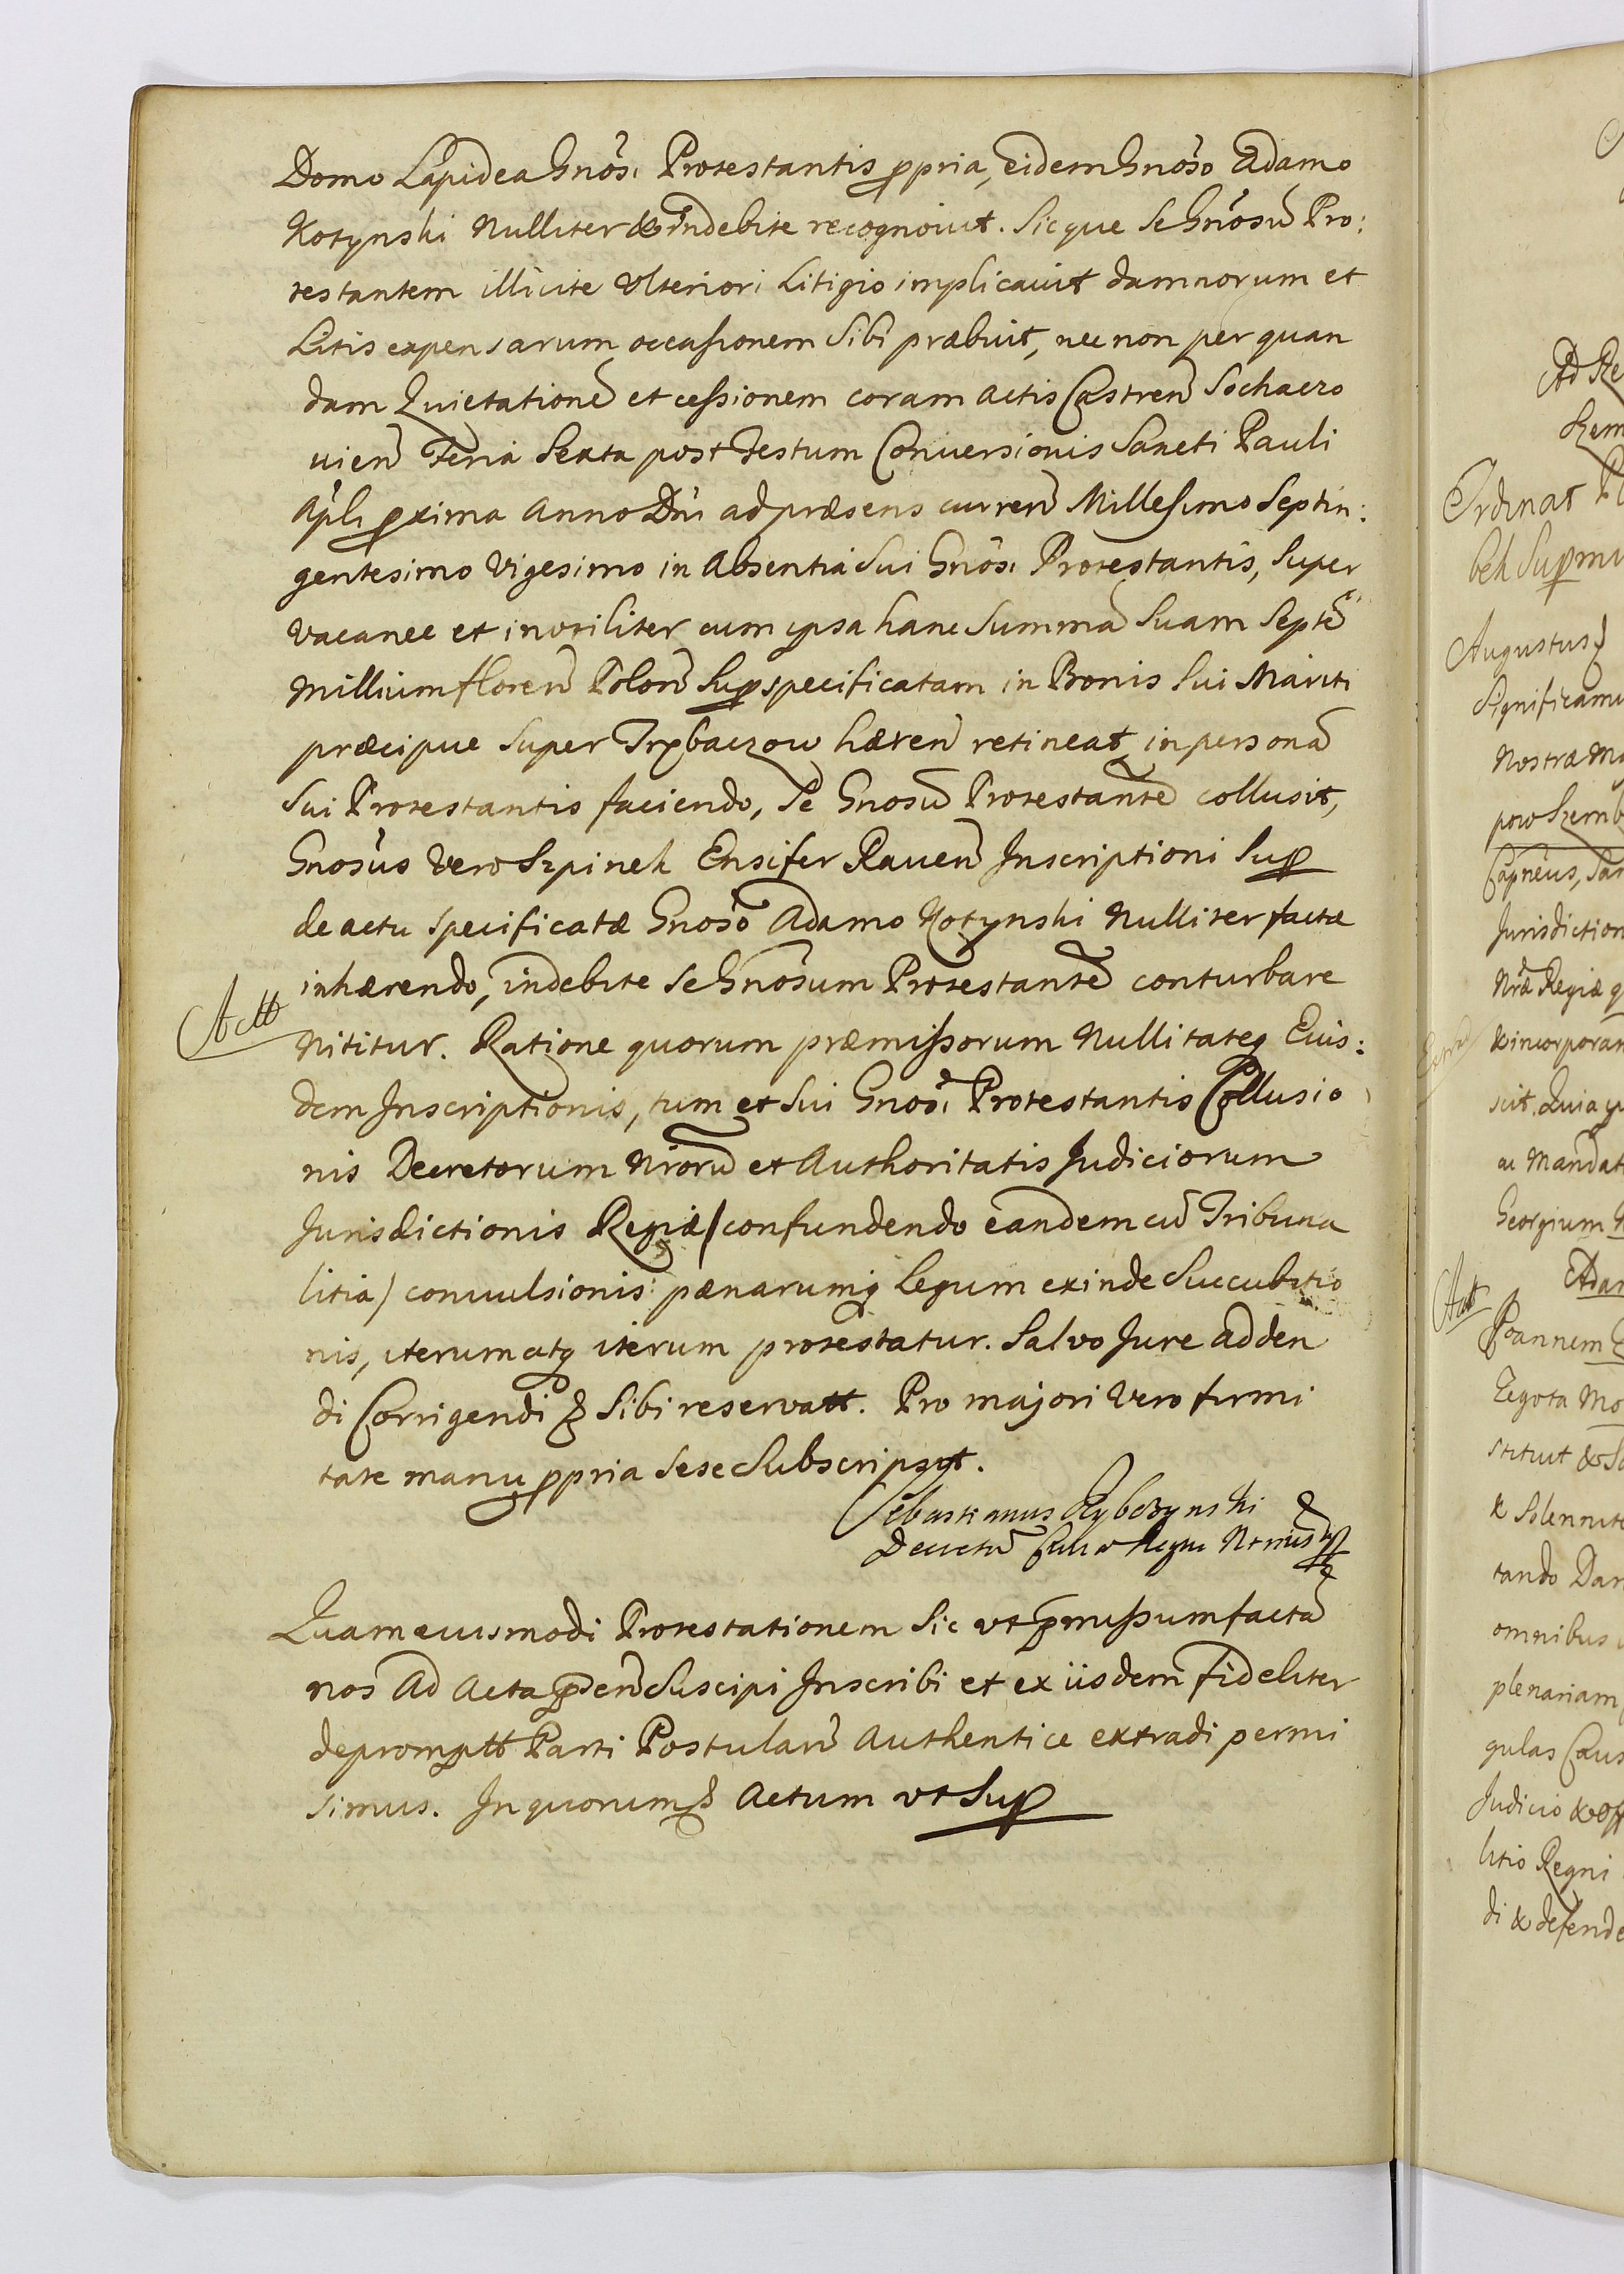 Domo Lapidea Gnosi Protestantis ppria, eidem Gnoso Adamo
Kotynski Nulliter & Indebite recognovit. Sicque Se Gnosu Pro:
testantem illicite Ulteriori Litigio implicavit damnorum et
Litis expensarum occasionem Sibi præbuit, nec non per quan
dam Quietatione et cessionem coram Actis Castren Sochaczo
vien Feria Sexta post Festum Conversionis Sancti Pauli
Apli pxima Anno Dni ad præsens curren Millesimo Septin:
gentesimo Vigesimo in Absentia Sui Gnosi Protestantis, Super
vacanee et inutiliter cum ipsa hanc Summa Suam Septe
Millium floren Polon Sup specificatam in Bonis Sui Mariti
præcipue Super Trzbaczow hæren retineat, in persona
Sui Protestantis faciendo, Se Gnosu Protestante collusit,
Gnosus Vero Szpinek Ensifer Raven Inscriptioni Sup
de actu specificatæ Gnoso Adamo Kotynski Nulliter factæ
inhærendo, indebite Se Gnosum Protestante conturbare
Nititur. Ratione quorum præmissorum Nullitateq Eius:
Act
dem Inscriptionis, tum et Sui Gnosi Protestantis Collusio
nis Decretorum Nroru et Authoritatis Judiciorum
Jurisdictionis Regiæ / confundendo eandem cu Tribuna
litia / convulsionis: pænarumq Legum exinde Succubitio
nis, iterum atq iterum protestatur. Salvo Jure adden
di Corrigendi & Sibi reservatt. Pro majori Vero firmi
tate manu ppria Sese Subscripsit.
Sebastianus Rybczynski
Quam euismodi Protestationem Sic ut pmissum facta
nos Ad Acta psen Suscipi Inscribi et ex iisdem fideliter
depromptt Parti Postulan Authentice extradi permi
simus. In quorum & Actum ut Sup
Ad Re
Ordinat
bek Supmu
Augustus
Significamu
Nostræ Ma
pow Szemb
Capneus, San
Jurisdiction
Nræ Regiæ q
& incorporan
scit. Quia
ac Mandat
Georgium
Adam
Act
Joannem
Zegota Mo
stituit & So
& Solennite
tando Dan
omnibus
plenariam
gulas Caus
Judicio & Off
litio Regni
di & defende